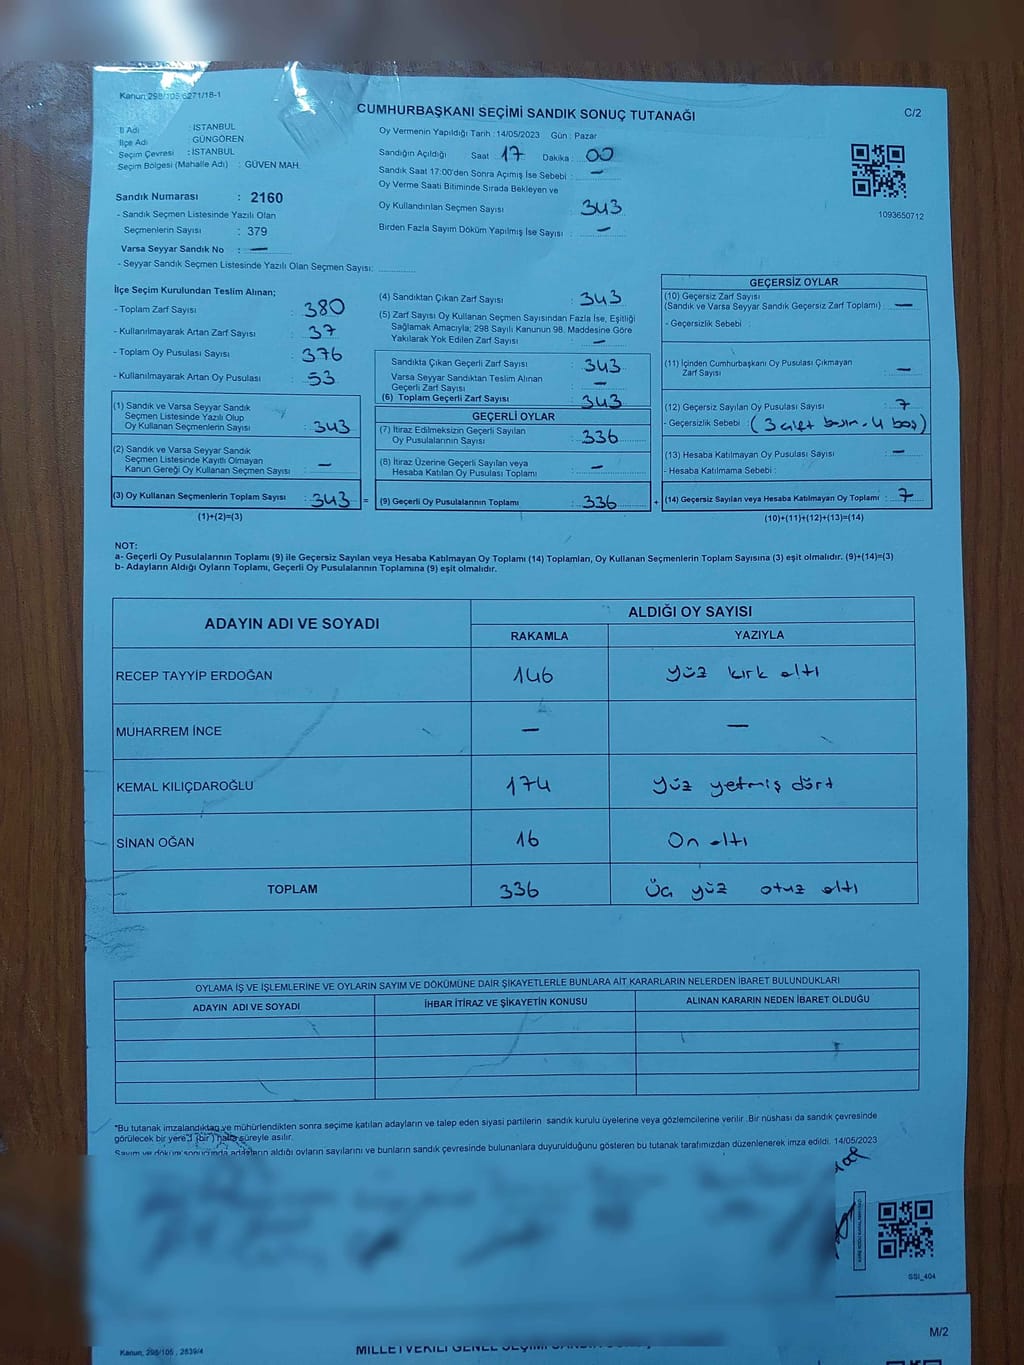 Kanun 298/105,6271/18-1
CUMHURBAŞKANI SEÇİMİ SANDIK SONUÇ TUTANAĞI
C/2
İl Adı : ISTANBUL
İlçe Adı : GÜNGÖREN
Seçim Çevresi : İSTANBUL
Seçim Bölgesi (Mahalle Adı) : GÜVEN MAH.
Sandık Numarası : 2160
- Sandık Seçmen Listesinde Yazılı Olan
Seçmenlerin Sayısı : 379
Varsa Seyyar Sandık No : —
- Seyyar Sandık Seçmen Listesinde Yazılı Olan Seçmen Sayısı:
Oy Vermenin Yapıldığı Tarih : 14/05/2023 Gün : Pazar
Sandığın Açıldığı Saat : 17 Dakika : 00
Sandık Saat 17:00'den Sonra Açımış İse Sebebi : —
Oy Verme Saati Bitiminde Sırada Bekleyen ve
Oy Kullandırılan Seçmen Sayısı : 343
Birden Fazla Sayım Döküm Yapılmış İse Sayısı : —
1093650712
İlçe Seçim Kurulundan Teslim Alınan;
- Toplam Zarf Sayısı : 380
- Kullanılmayarak Artan Zarf Sayısı : 37
- Toplam Oy Pusulası Sayısı : 376
- Kullanılmayarak Artan Oy Pusulası : 53
(1) Sandık ve Varsa Seyyar Sandık
Seçmen Listesinde Yazılı Olup
Oy Kullanan Seçmenlerin Sayısı : 343
(2) Sandık ve Varsa Seyyar Sandık
Seçmen Listesinde Kayıtlı Olmayan
Kanun Gereği Oy Kullanan Seçmen Sayısı : —
(3) Oy Kullanan Seçmenlerin Toplam Sayısı : 343 =
(1)+(2)=(3)
(4) Sandıktan Çıkan Zarf Sayısı : 343
(5) Zarf Sayısı Oy Kullanan Seçmen Sayısından Fazla İse, Eşitliği
Sağlamak Amacıyla; 298 Sayılı Kanunun 98. Maddesine Göre
Yakılarak Yok Edilen Zarf Sayısı : —
Sandıkta Çıkan Geçerli Zarf Sayısı : 343
Varsa Seyyar Sandıktan Teslim Alınan
Geçerli Zarf Sayısı : —
(6) Toplam Geçerli Zarf Sayısı : 343
GEÇERLİ OYLAR
(7) İtiraz Edilmeksizin Geçerli Sayılan
Oy Pusulalarının Sayısı : 336
(8) İtiraz Üzerine Geçerli Sayılan veya
Hesaba Katılan Oy Pusulası Toplamı : —
(9) Geçerli Oy Pusulalarının Toplamı : 336 +
GEÇERSİZ OYLAR
(10) Geçersiz Zarf Sayısı
(Sandık ve Varsa Seyyar Sandık Geçersiz Zarf Toplamı) : —
- Geçersizlik Sebebi :
(11) İçinden Cumhurbaşkanı Oy Pusulası Çıkmayan
Zarf Sayısı : —
(12) Geçersiz Sayılan Oy Pusulası Sayısı : 7
- Geçersizlik Sebebi : (3 çift basım - 4 boş)
(13) Hesaba Katılmayan Oy Pusulası Sayısı : —
- Hesaba Katılmama Sebebi :
(14) Geçersiz Sayılan veya Hesaba Katılmayan Oy Toplamı : 7
(10)+(11)+(12)+(13)=(14)
NOT:
a- Geçerli Oy Pusulalarının Toplamı (9) ile Geçersiz Sayılan veya Hesaba Katılmayan Oy Toplamı (14) Toplamları, Oy Kullanan Seçmenlerin Toplam Sayısına (3) eşit olmalıdır. (9)+(14)=(3)
b- Adayların Aldığı Oyların Toplamı, Geçerli Oy Pusulalarının Toplamına (9) eşit olmalıdır.
ADAYIN ADI VE SOYADI
ALDIĞI OY SAYISI
RAKAMLA YAZIYLA
RECEP TAYYİP ERDOĞAN 146 yüz kırk altı
MUHARREM İNCE — —
KEMAL KILIÇDAROĞLU 174 yüz yetmiş dört
SİNAN OĞAN 16 On altı
TOPLAM 336 Üç yüz otuz altı
OYLAMA İŞ VE İŞLEMLERİNE VE OYLARIN SAYIM VE DÖKÜMÜNE DAİR ŞİKAYETLERLE BUNLARA AİT KARARLARIN NELERDEN İBARET BULUNDUKLARI
ADAYIN ADI VE SOYADI İHBAR İTİRAZ VE ŞİKAYETİN KONUSU ALINAN KARARIN NEDEN İBARET OLDUĞU
*Bu tutanak imzalandıktan ve mühürlendikten sonra seçime katılan adayların ve talep eden siyasi partilerin sandık kurulu üyelerine veya gözlemcilerine verilir. Bir nüshası da sandık çevresinde
görülecek bir yere 1 (bir) hafta süreyle asılır.
Sayım ve döküm sonucunda adayların aldığı oyların sayılarını ve bunların sandık çevresinde bulunanlara duyurulduğunu gösteren bu tutanak tarafımızdan düzenlenerek imza edildi. 14/05/2023
SSI_404
M/2
Kanun, 298/105 , 2839/4
MİLLETVEKİLİ GENEL SEÇİMİ